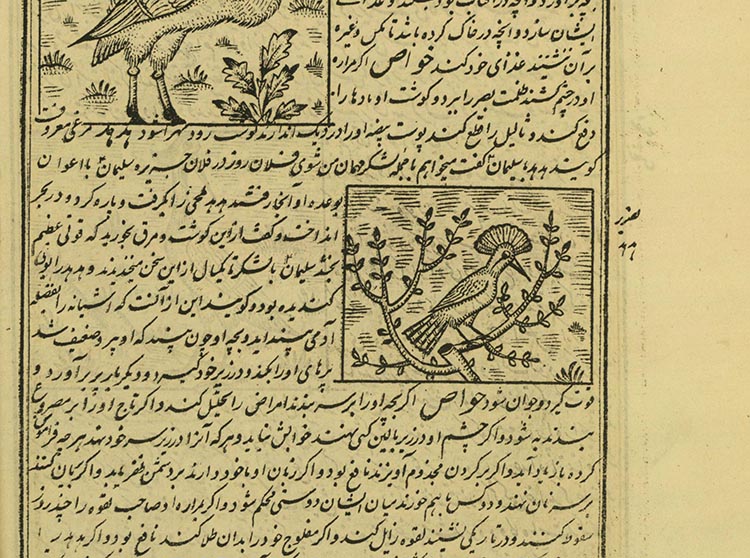 ایشان سازد و آنچه در خاک کرده باشد تا مکس و غیره
بر آن ننشیند غذای خود کند خواص اگر مراره
او در چشم کشند ظلمت بصر را ببرد و گوشت او بادها را
دفع کند و ثالیل را قطع کند پوست بیضه او را در دیک اندازند گوشت زود مهرا شود هدهد مرغی معروفست
گویند هدهد با سلیمان گفت میخواهم با جمله لشکر مهمان من شوی فلان روز در فلان جزیره سلیمان با اعوان
بوعده او آنجا رفتند هدهد ملخی را بگرفت و پاره کرد و در بحر
انداخت و گفت از این گوشت و مرق بخورید که قوتی عظیم
بخشد سلیمان با لشکر تا یکسال از این سخن میخندیدند و هدهد را
گندیده بود و گویند این از آنست که آشیانه را بفضله
آدمی
بچه او چون بیند که او پیر و ضعیف شد
پرهای او را بکند و در زیر خود گیرد و دیگر بار پر برآورد و
قوت گیرد و جوان شود خواص اگر بچه او را بر سه بندند امراض را تحلیل کند و اگر تاج او را بر مصروع
بندند به شود و اگر چشم او در زیر بالین کسی نهند خوابش نیاید و هر که آنرا در زیر سر خود نهد هر چه فراموش
کرده باز یاد آید و اگر بر گردن مجذوم آویزند نافع بود و اگر زبان او با خود دارند بر دشمن ظفر یابد و اگر
بر سر نان نهند و دو کس با هم خورند میان ایشان دوستی محکم شود و اگر مراره او صاحب لقوه را چند روز
سقوط کنند و در تاریکی نشیند لقوه زایل کند و اگر مفلوج خود را بدان طلا کند نافع بود و اگر
هدهد
۶۶